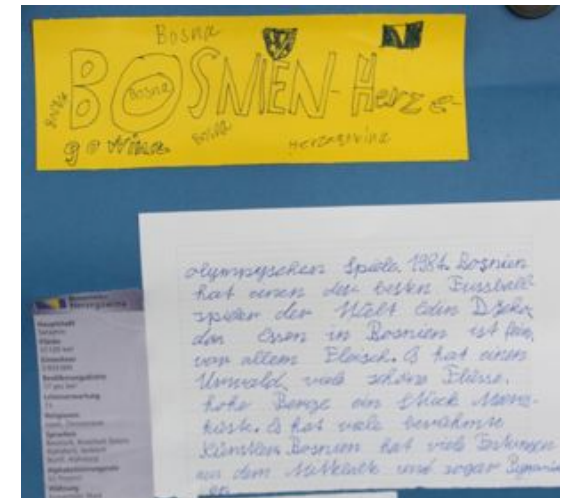 Bosna
BOSNIEN-Herze-
Bosna
Bosna
Bosna
gowina
Herzegovina
olympyschen Spiele. 1984. Bosnien
hat einen der besten Fussball
spieler der Welt Edin Dzeko,
das Essen in Bosnien ist fein,
vor allem Fleisch. Es hat einen
Urwald, viele schöne Flüsse,
hohe Berge ein Stück Meres-
küste. Es hat viele berühmte
Künstler. Bosnien hat viele Festungen
aus dem Mittelalter und sogar
Herzegowina
Hauptstadt
Sarajevo
Fläche
Einwohner
Bevölkerungsdichte
Lebenserwartung
Religionen
Sprachen
Alphabetisierungsrate
Währung